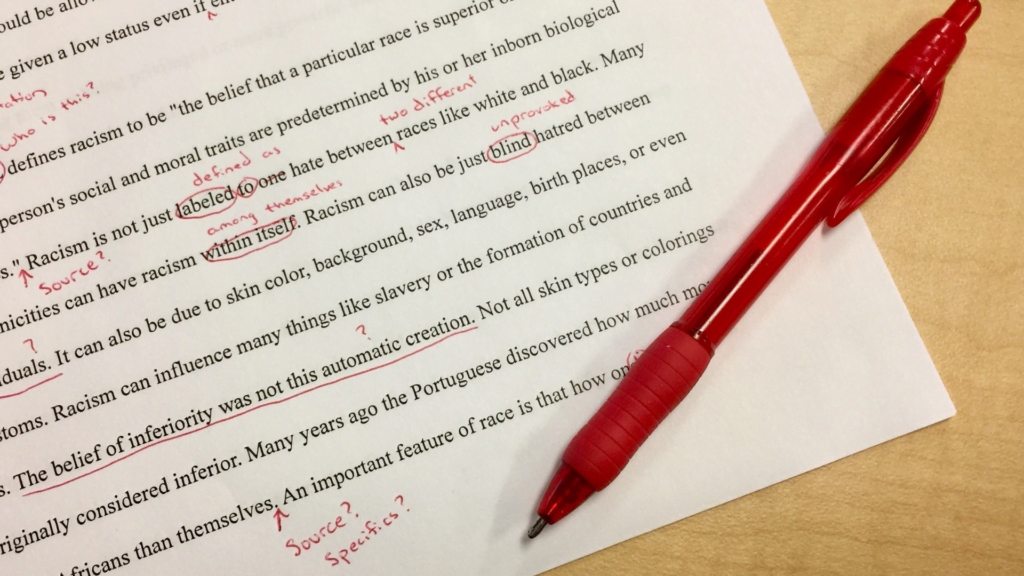 ould be allow
e given a low status even if
ration
who is this?
defines racism to be "the belief that a particular race is superior o
two different
person's social and moral traits are predetermined by his or her inborn biological
defined as
unprovoked
s." Racism is not just labeled to one hate between races like white and black. Many
Source?
among themselves
nicities can have racism within itself. Racism can also be just blind hatred between
?
duals. It can also be due to skin color, background, sex, language, birth places, or even
stoms. Racism can influence many things like slavery or the formation of countries and
?
s. The belief of inferiority was not this automatic creation. Not all skin types or colorings
riginally considered inferior. Many years ago the Portuguese discovered how much mo
fricans than themselves. An important feature of race is that how on
Source?
Specifics?